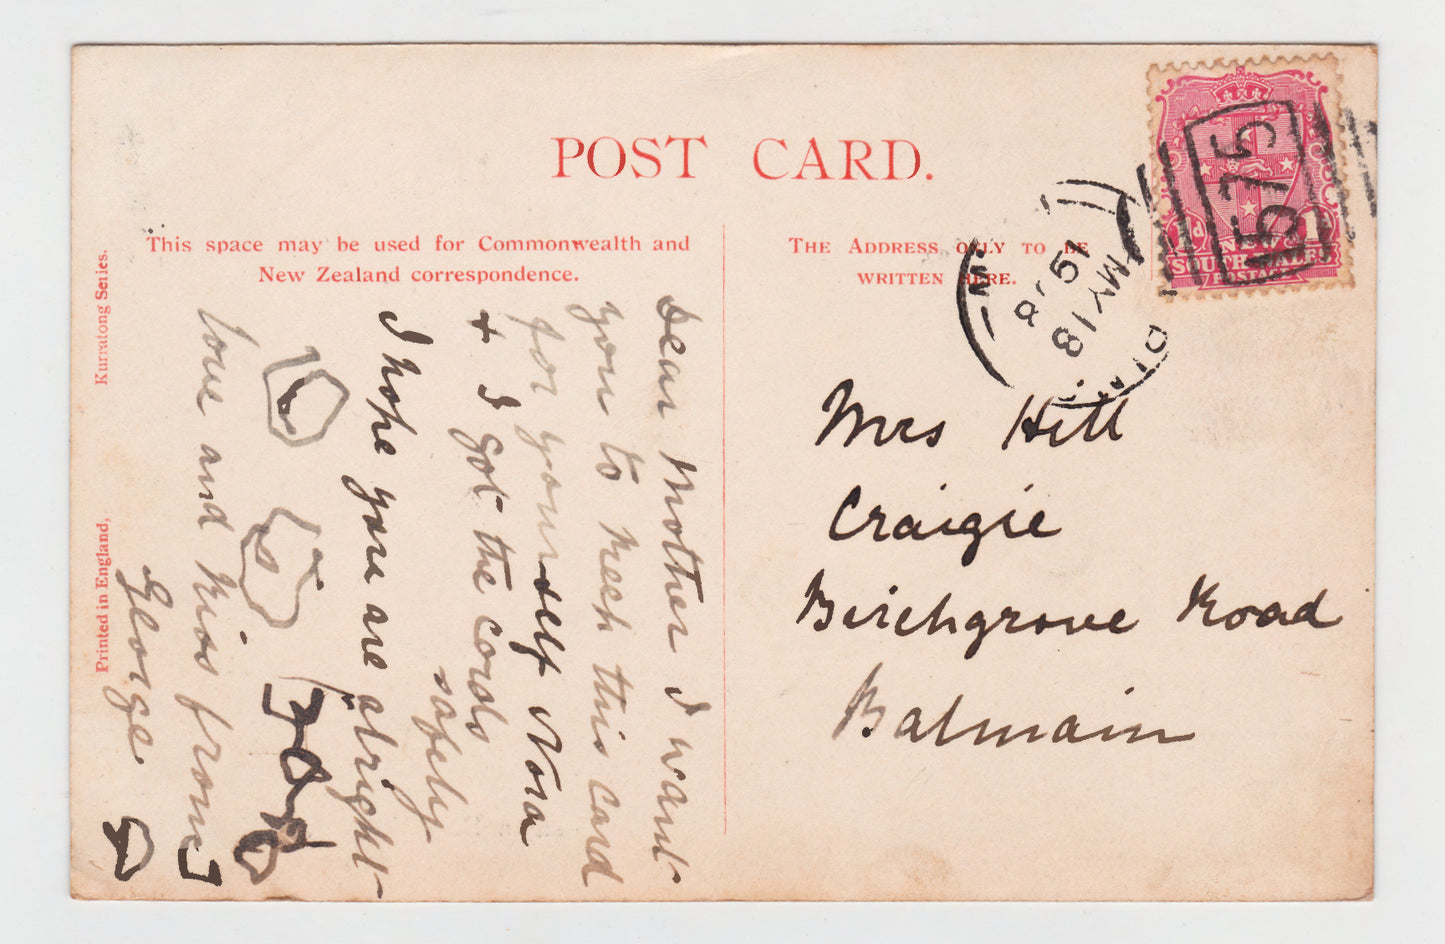 POST CARD.
This space may be used for Commonwealth and
New Zealand correspondence.
THE ADDRESS ONLY TO BE
WRITTEN HERE.
Kurratong Series.
Printed in England,
1575
MY 18
NEW
SOUTH WALES
POSTAGE
1
d
Dear Mother I want
you to keep this card
for yourself Nora
+ I got the cards
safely
I hope you are alright
love and kiss from
George
Mrs Hill
Craigie
Birchgrove Road
Balmain